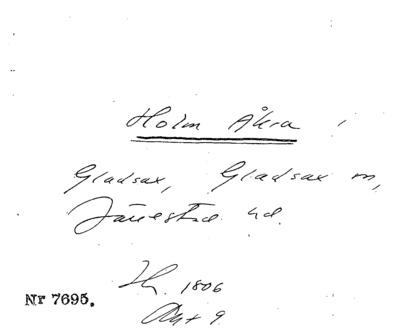 Holm Åkra
Gladsax, Gladsax sn,
Järrestad hd.
1806
Akt 9
Nr 7695.